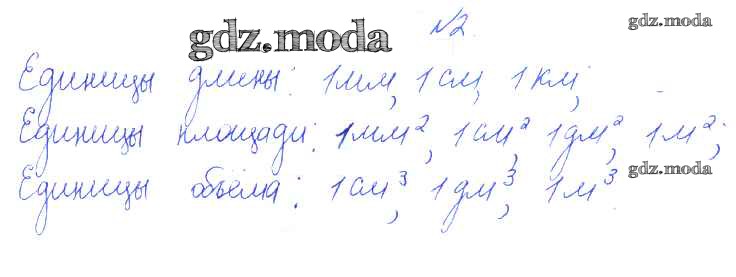 gdz.moda
№2.
gdz.moda
Единицы длины: 1мм, 1см, 1км;
Единицы площади: 1мм², 1см², 1дм², 1м²;
Единицы объёма: 1см³, 1дм³, 1м³.
gdz.moda